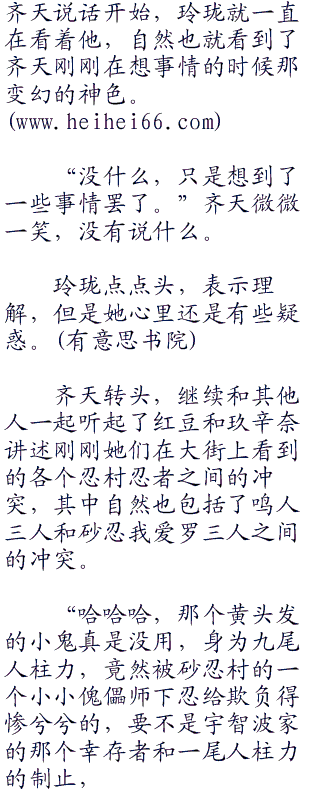 齐天说话开始，玲珑就一直
在看着他，自然也就看到了
齐天刚刚在想事情的时候那
变幻的神色。
(www.heihei66.com)
“没什么，只是想到了
一些事情罢了。”齐天微微
一笑，没有说什么。
玲珑点点头，表示理
解，但是她心里还是有些疑
惑。(有意思书院)
齐天转头，继续和其他
人一起听起了红豆和玖辛奈
讲述刚刚她们在大街上看到
的各个忍村忍者之间的冲
突，其中自然也包括了鸣人
三人和砂忍我爱罗三人之间
的冲突。
“哈哈哈，那个黄头发
的小鬼真是没用，身为九尾
人柱力，竟然被砂忍村的一
个小小傀儡师下忍给欺负得
惨兮兮的，要不是宇智波家
的那个幸存者和一尾人柱力
的制止，